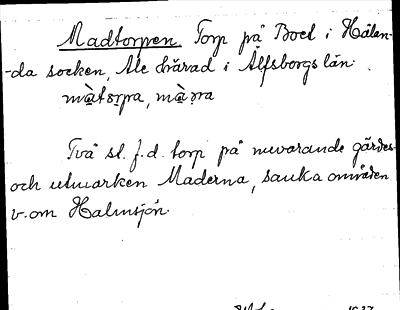 Madtorpen. Torp på Boet i Hålan-
-da socken, Ale härad i Älfsborgs län.
Två st. f.d. torp på nuvarande gärdes-
och utmarken Maderna, sanka områden
v. om Halmsjön.